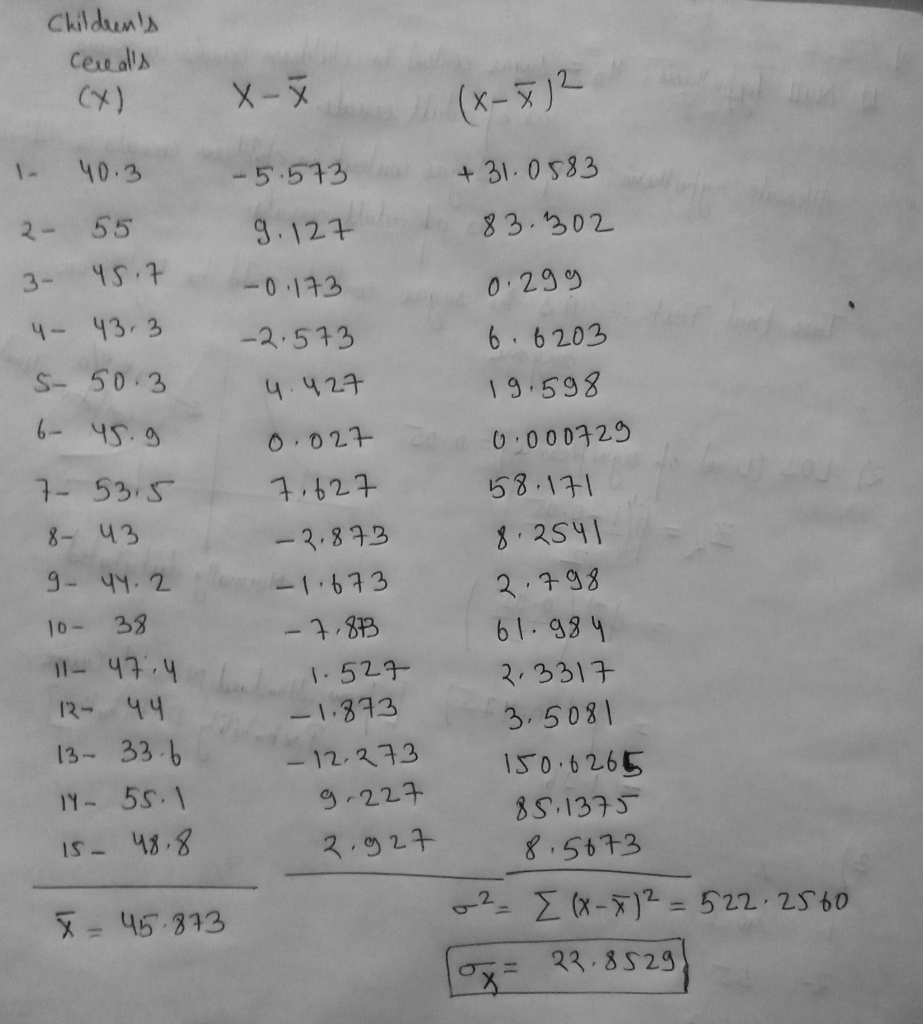 Children's
Cereal's
(X) X - x̄ (x - x̄)²
1- 40.3 -5.573 +31.0583
2- 55 9.127 83.302
3- 45.7 -0.173 0.299
4- 43.3 -2.573 6.6203
5- 50.3 4.427 19.598
6- 45.9 0.027 0.000729
7- 53.5 7.627 58.171
8- 43 -2.873 8.2541
9- 44.2 -1.673 2.798
10- 38 -7.873 61.984
11- 47.4 1.527 2.3317
12- 44 -1.873 3.5081
13- 33.6 -12.273 150.6265
14- 55.1 9.227 85.1375
15- 48.8 2.927 8.5673
x̄ = 45.873 σ² = Σ (x - x̄)² = 522.2560
σx = 22.8529